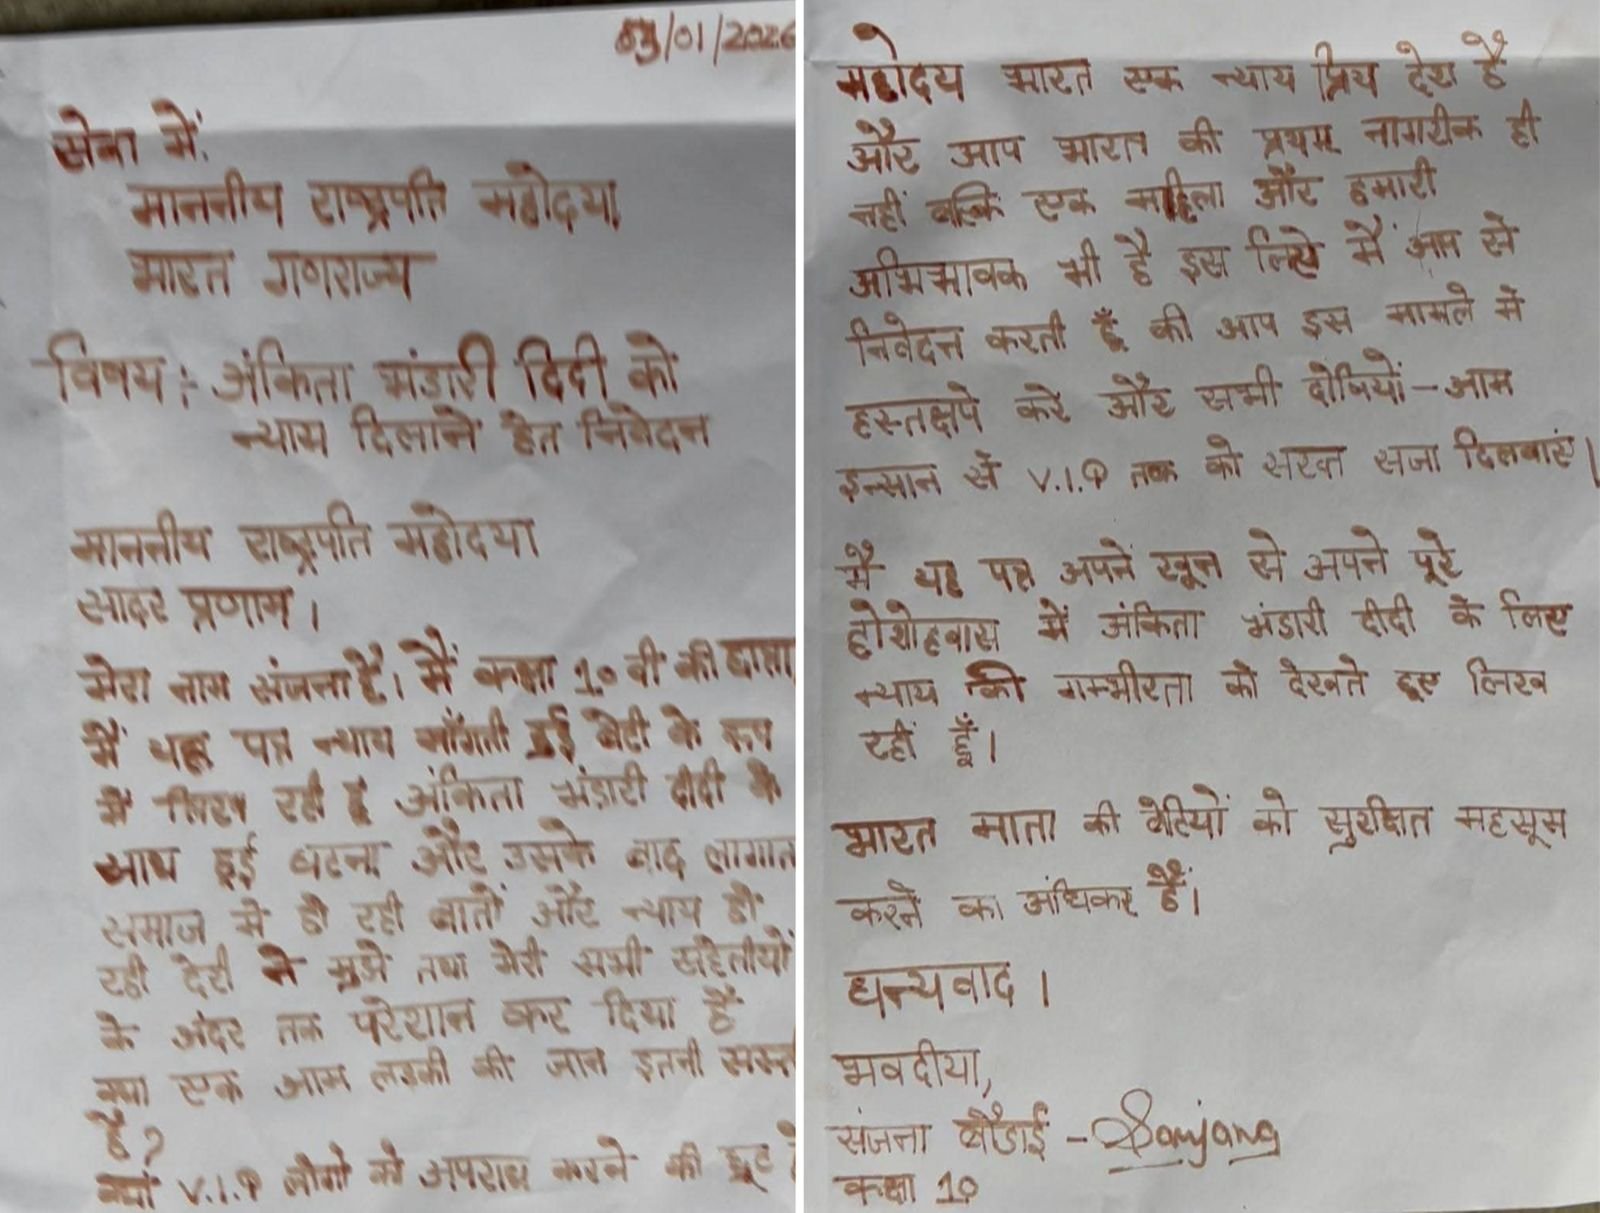 03/01/2026
सेवा में,
माननीय राष्ट्रपति महोदया
भारत गणराज्य
विषय :- अंकिता भंडारी दिदी को
न्याय दिलाने हेत निवेदन
माननीय राष्ट्रपति महोदया
सादर प्रणाम।
मेरा नाम संजना है। मैं कक्षा 10 वी की छात्रा
मैं यह पत्र न्याय माँगती हुई बेटी के रूप
में लिख रही हूँ अंकिता भंडारी दीदी के
साथ हुई घटना और उसके बाद लागात
समाज में हो रही बातों और न्याय हो
रही देरी ने मुझे तथा मेरी सभी सहेलीयों
के अंदर तक परेशान कर दिया हैं
क्या एक आम लडकी की जान इतनी सस्त
है?
क्यां V.I.P लोगो को अपराध करने की छूट है
महोदय भारत एक न्याय प्रिय देश है
और आप भारत की प्रथम नागरीक ही
नहीं बल्कि एक महिला और हमारी
अभिभावक भी है इस लिए मैं आप से
निवेदन करती हूँ की आप इस मामले में
हस्तक्षपे करे और सभी दोषियों - आम
इन्सान से V.I.P तक को सख्त सजा दिलवाएं।
मैं यह पत्र अपने खून से अपने पूरे
होशोहवास में अंकिता भंडारी दीदी के लिए
न्याय की गम्भीरता को देखते हुए लिख
रहीं हूँ।
भारत माता की बेटियों को सुरक्षित महसूस
करने का अधिकर हैं।
धन्यवाद।
भवदीया,
संजना बौडाई - Sanjana
कक्षा 10